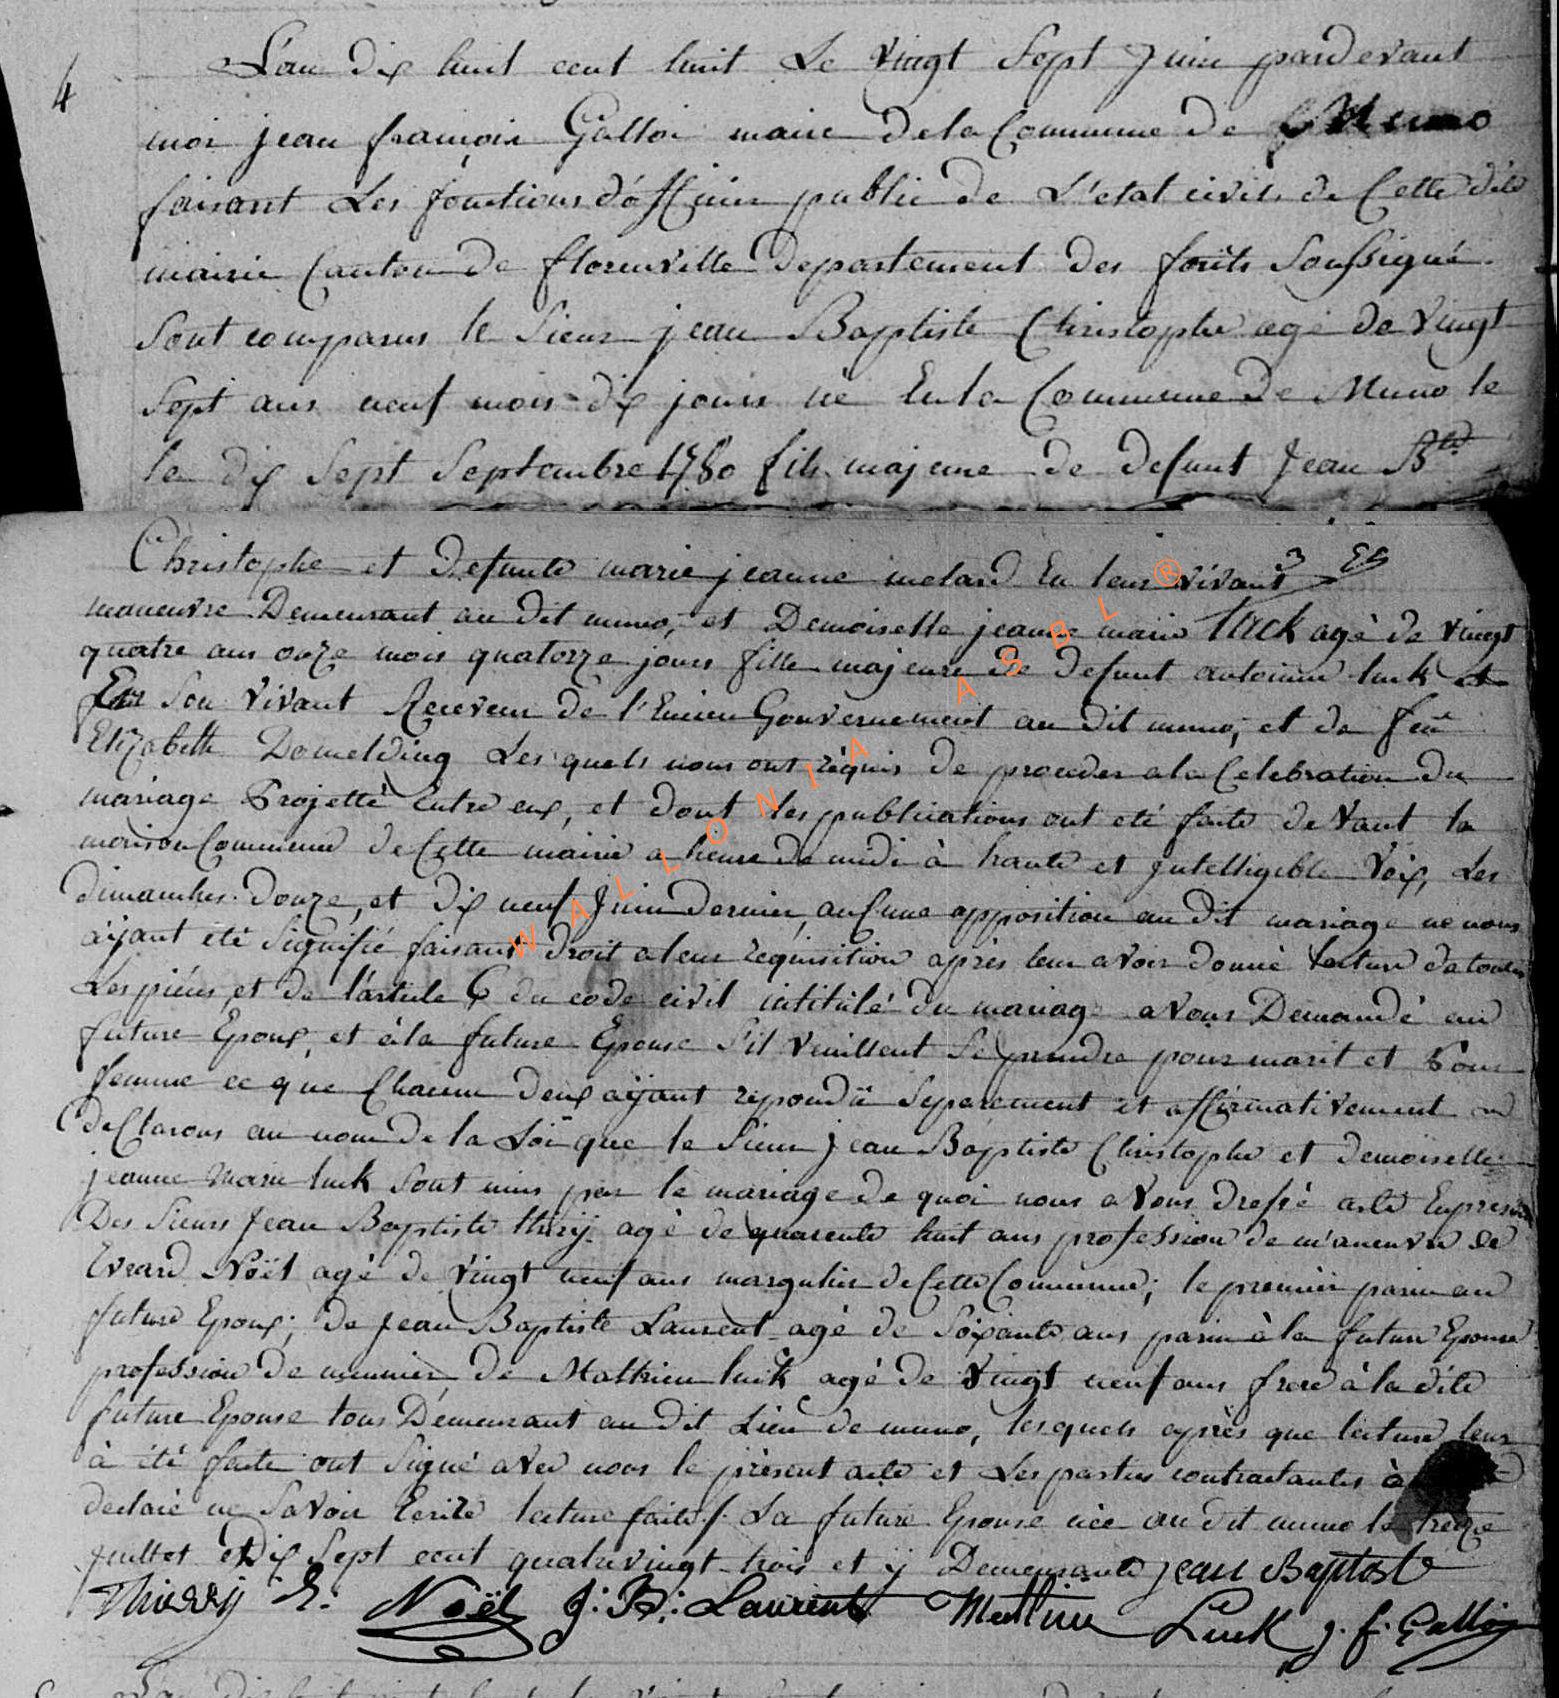 4
L'an dix huit cent huit Le Vingt Sept Juin pardevant
moi jean françois Galloi maire de la Commune de Muno
faisant Les fonctions d'officier public de L'etat civil de Cette dite
mairie Canton de florenville departement des forêts Soussigné
Sont comparus le Sieur jean Baptiste Christophe agé de Vingt
Sept ans neuf mois dix jours né En la Commune de Muno le
le dix Sept Septembre 1780 fils majeure de defunt Jean Bte
Christophe et defunte marie jeanne melard En leur vivant
maneuvre Demeurant au dit muno, et Demoiselle jeanne marie luck agé de vingt
quatre ans onze mois quatorze jours fille majeure de defunt antoinne luck et
En Son Vivant Receveur de l'Encien Gouvernement au dit muno, et de feuë
Elizabeth Domelding Les quels nous ont réquis de proceder a la Celebration du
mariage Projetté Entre eux, et dont les publications ont eté faite deVant la
maison Commune de Cette mairie a heure de midi à haute et Intelligible Voix, Les
dimanches Douze, et dix neuf Juin dernier, aucune apposition au dit mariage ne nous
aÿant été Signifié faisant droit a leur réquisition après leur avoir donné lecture de toutes
Les piéces, et de l'article 6 du code civil intitulé du mariage avons Demandé au
future Epoux, et à la future Epouse S'il veuillent Se prendre pour marit et Pour
femme ce que Chacun deux aÿant repondü Separement et affirmativement
declarons au nom de la Loi que le Sieur jean Baptiste Christophe et demoiselle
jeanne Marie luck Sont unis par le mariage de quoi nous avons dressé acte En presence
Des Sieurs Jean Baptiste thiry agé de quarente huit ans profession de m'aneuvre De
Evrard Noël agé de Vingt neuf ans margulier de Cette Commune; le premier parin au
future Epoux; de Jean Baptiste Laurent agé de Soixante ans parin à la future Epouse
profession de meunier, de Mathieu luck agé de Vingt neuf ans frere à la dite
future Epouse tous Demeurant au dit Lieu de muno, lesquels après que lecture leur
à été faite ont Signé avec nous le présent acte et Les parties contractantes à
declaré ne Savoir Ecrire lecture faite /. La future Epouse née au dit muno le treize
Juillet Dix Sept cent quatrevingt trois et y Demeurante jean Baptiste
Thierry E. Noël J: B: Laurent Mathieu Luck j. f. Galloi
WALLONIA ASBL ®